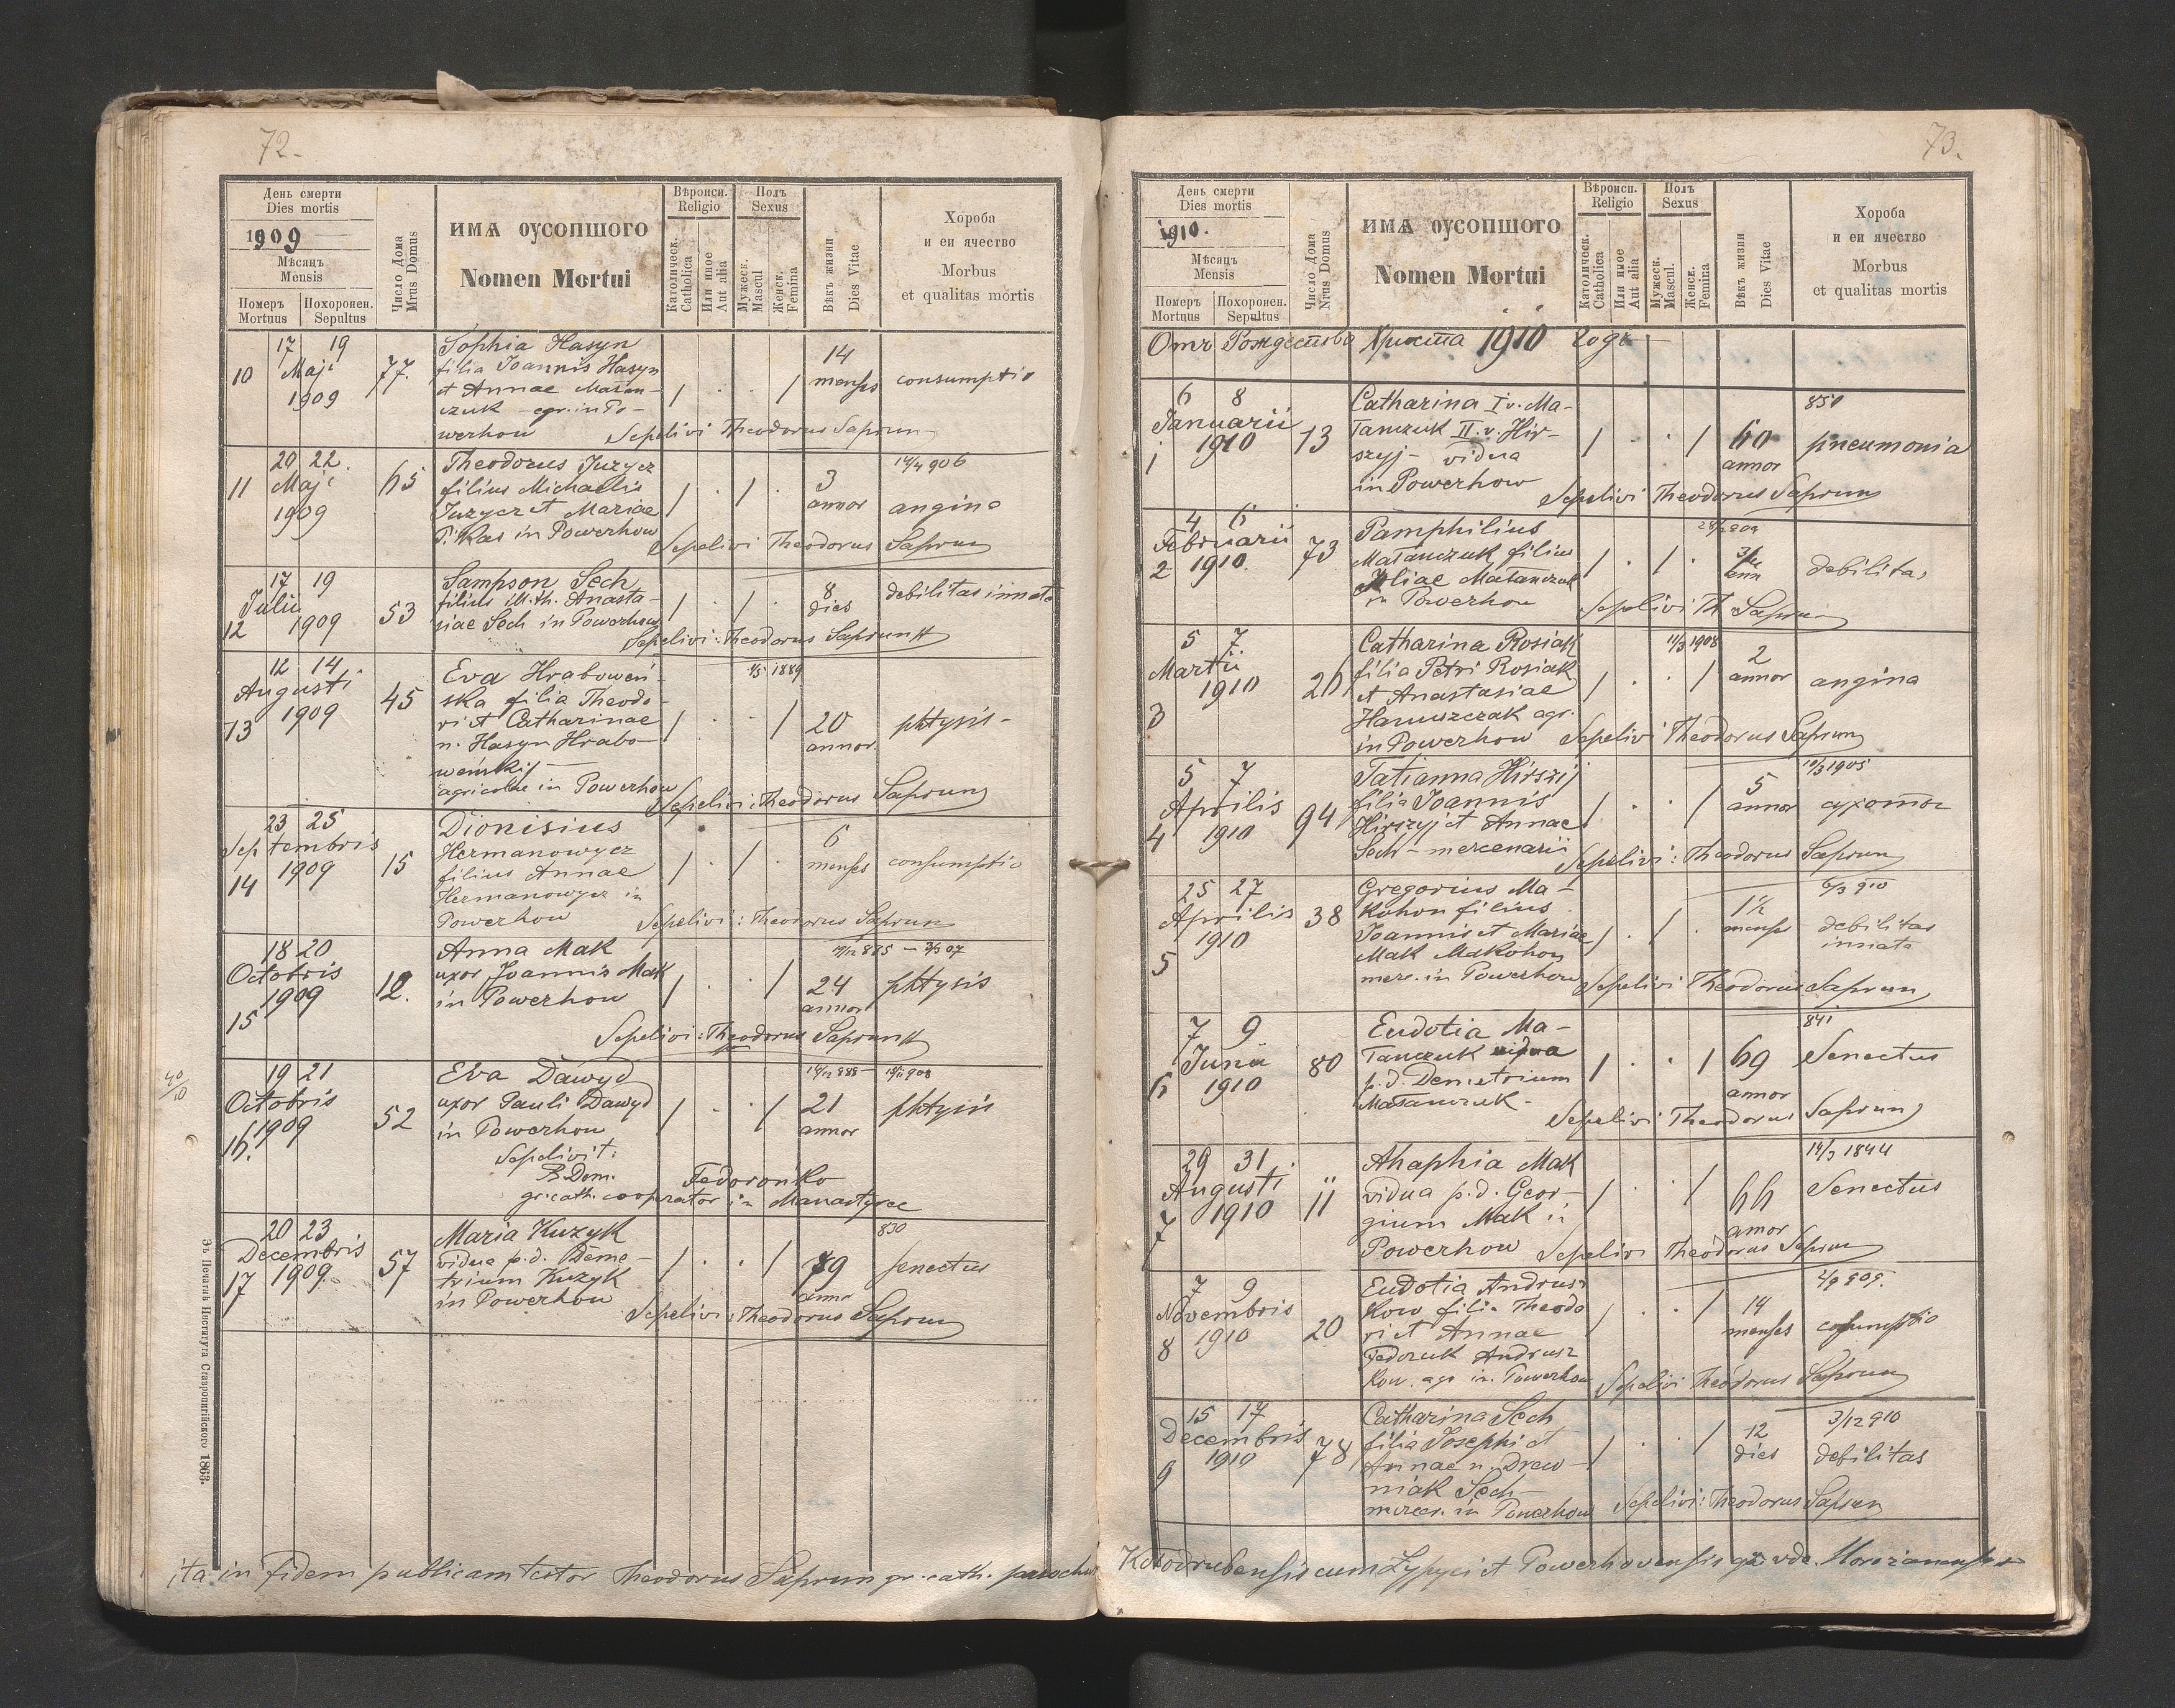 72.
День смерти
Dies mortis
1909
Мѣсяць
Mensis
Померъ
Mortuus
Похоронен.
Sepultus
Число Дома
Mrus Domus
ИМѦ ОУСОПШОГО
Nomen Mortui
Вѣроисп.
Religio
Католическ.
Catholica
Или иное
Aut alia
Полъ
Sexus
Мужеск.
Mascul
Женск.
Femina
Вѣкъ жизни
Dies Vitae
Хороба
и еи ячество
Morbus
et qualitas mortis
10
17 19
Maji
1909
77.
Sophia Hasyn
filia Joannis Hasyn
et Annae Matan-
czuk - agr. in Po-
werhow
14
menses
consumptio
Sepelivi Theodorus Saprun
11
20 22.
Maji
1909
65
Theodorus Juzycz
filius Michaelis
Juzycz et Mariae
in Powerhow
3
annor
14/4 906
angina
Sepelivi Theodorus Saprun
12
17 19
Julii
1909
53
Sampson Sech
filius ill. th. Anasta-
siae Sech in Powerhow
8
dies
debilitas innata
Sepelivi: Theodorus Saprun
13
12 14
Augusti
1909
45
Eva Hraboweń-
ska filia Theodo-
ri et Catharinae
n. Hasyn Hrabo-
weńskij
agricolae in Powerhow
1889
20
annor
phtysis -
Sepelivi: Theodorus Saprun
14
23 25
Septembris
1909
15
Dionisius
Hermanowycz
filius Annae
Hermanowycz in
Powerhow
6
menses
consumptio
Sepelivi: Theodorus Saprun
15
18 20
Octobris
1909
12.
Anna Mak
uxor Joannis Mak
in Powerhow
24
annor
phtysis
Sepelivi: Theodorus Saprun
40/10
16.
19 21
Octobris
1909
52
Eva Dawyd
uxor Pauli Dawyd
in Powerhow
21
annor
phtysis
Sepelivit:
R. Dom. Fedoronko
gr. cath. cooperator in Manastyrec
17
20 23
Decembris
1909.
57
Maria Kuzyk
vidua p. d. Deme-
trium Kuzyk
in Powerhow
830
79
anno
senectus
Sepelivi: Theodorus Saprun
Зъ Печатнѣ Института Ставропигійского 1863.
ita in fidem publicam testor Theodorus Saprun gr. cath. parochus
73.
День смерти
Dies mortis
1910.
Мѣсяць
Mensis
Померъ
Mortuus
Похоронен.
Sepultus
Число Дома
Nrus Domus
ИМѦ ОУСОПШОГО
Nomen Mortui
Вѣроисп.
Religio
Католическ.
Catholica
Или иное
Aut alia
Полъ
Sexus
Мужеск.
Mascul.
Женск.
Femina
Вѣкъ жизни
Dies Vitae
Хороба
и еи ячество
Morbus
et qualitas mortis
Отъ Рождества Христа 1910 года
1
6 8
Januarii
1910
13
Catharina I v. Ma-
tanczuk II. v. Hir-
szyj - vidua
in Powerhow
60
annor
850
pneumonia
Sepelivi Theodorus Saprun
2
4 6
Februarii
1910.
73
Pamphilius
Matanczuk filius
Juliae Matanczuk
in Powerhow
debilitas
Sepelivi Th Saprun
3
5 7
Martii
1910
26
Catharina Rosiak
filia Petri Rosiak
et Anastasiae
Hanuszczak agr.
in Powerhow
11/3 1908
2
annor
angina
Sepelivi Theodorus Saprun
4
5 7
Aprilis
1910
94
Tatianna Hirszij
filia Joannis
Hirszyj et Annae
Sech - mercenarii
5
annor
10/3 1905
сухоты
Sepelivi: Theodorus Saprun
5
25 27
Aprilis
1910
38
Gregorius Ma-
kohon filius
Joannis et Mariae
Mak Makohon
merc. in Powerhow
1 1/2
menses
6/3 910
debilitas
innata
Sepelivi Theodorus Saprun
6
7 9
Junii
1910
80
Eudotia Ma-
tanczuk vidua
p. d. Demetrium
Matanczuk -
69
annor
841
Senectus
Sepelivi Theodorus Saprun
7
29 31.
Augusti
1910
11
Ahaphia Mak
vidua p. d. Geor-
gium Mak in
Powerhow
66
annor
14/3 1844
Senectus
Sepelivi Theodorus Saprun
8
7 9
Novembris
1910
20
Eudotia Andrusz
kow filia Theodo
ri et Annae
Fedozuk Andrusz
kow. agr in. Powerhow
14
menses
2/9 909.
consumptio
Sepelivi Theodorus Saprun
9
15 17
Decembris
1910
78
Catharina Sech
filia Josephi et
Annae n. Drew-
niak Sech-
mercen. in Powerhow
12
dies
3/12 910
debilitas
Sepelivi: Theodorus Saprun
Kołodrubensis cum Łypyci et Powerhovensis